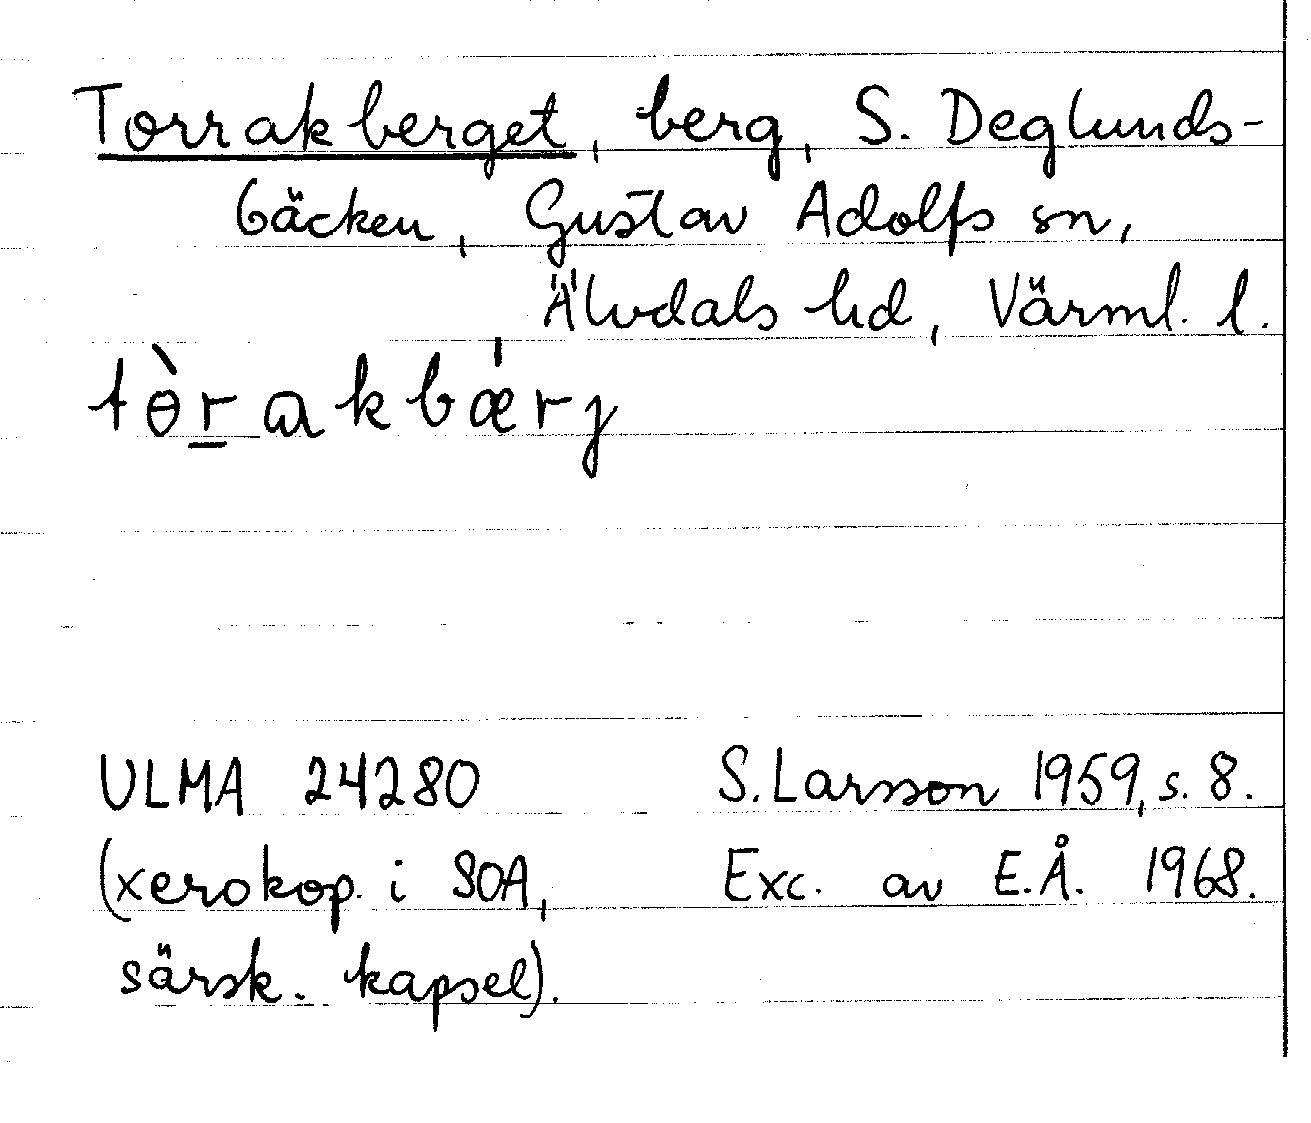 Torrakberget, berg, S. Deglunds-
bäcken, Gustav Adolfs sn,
Älvdals hd, Värml. l.
tɵ̀r̲ɑkbǽrj
ULMA 24280 S. Larsson 1959, s. 8.
(xerokop. i SOA, Exc. av E.Å. 1968.
särsk. kapsel).